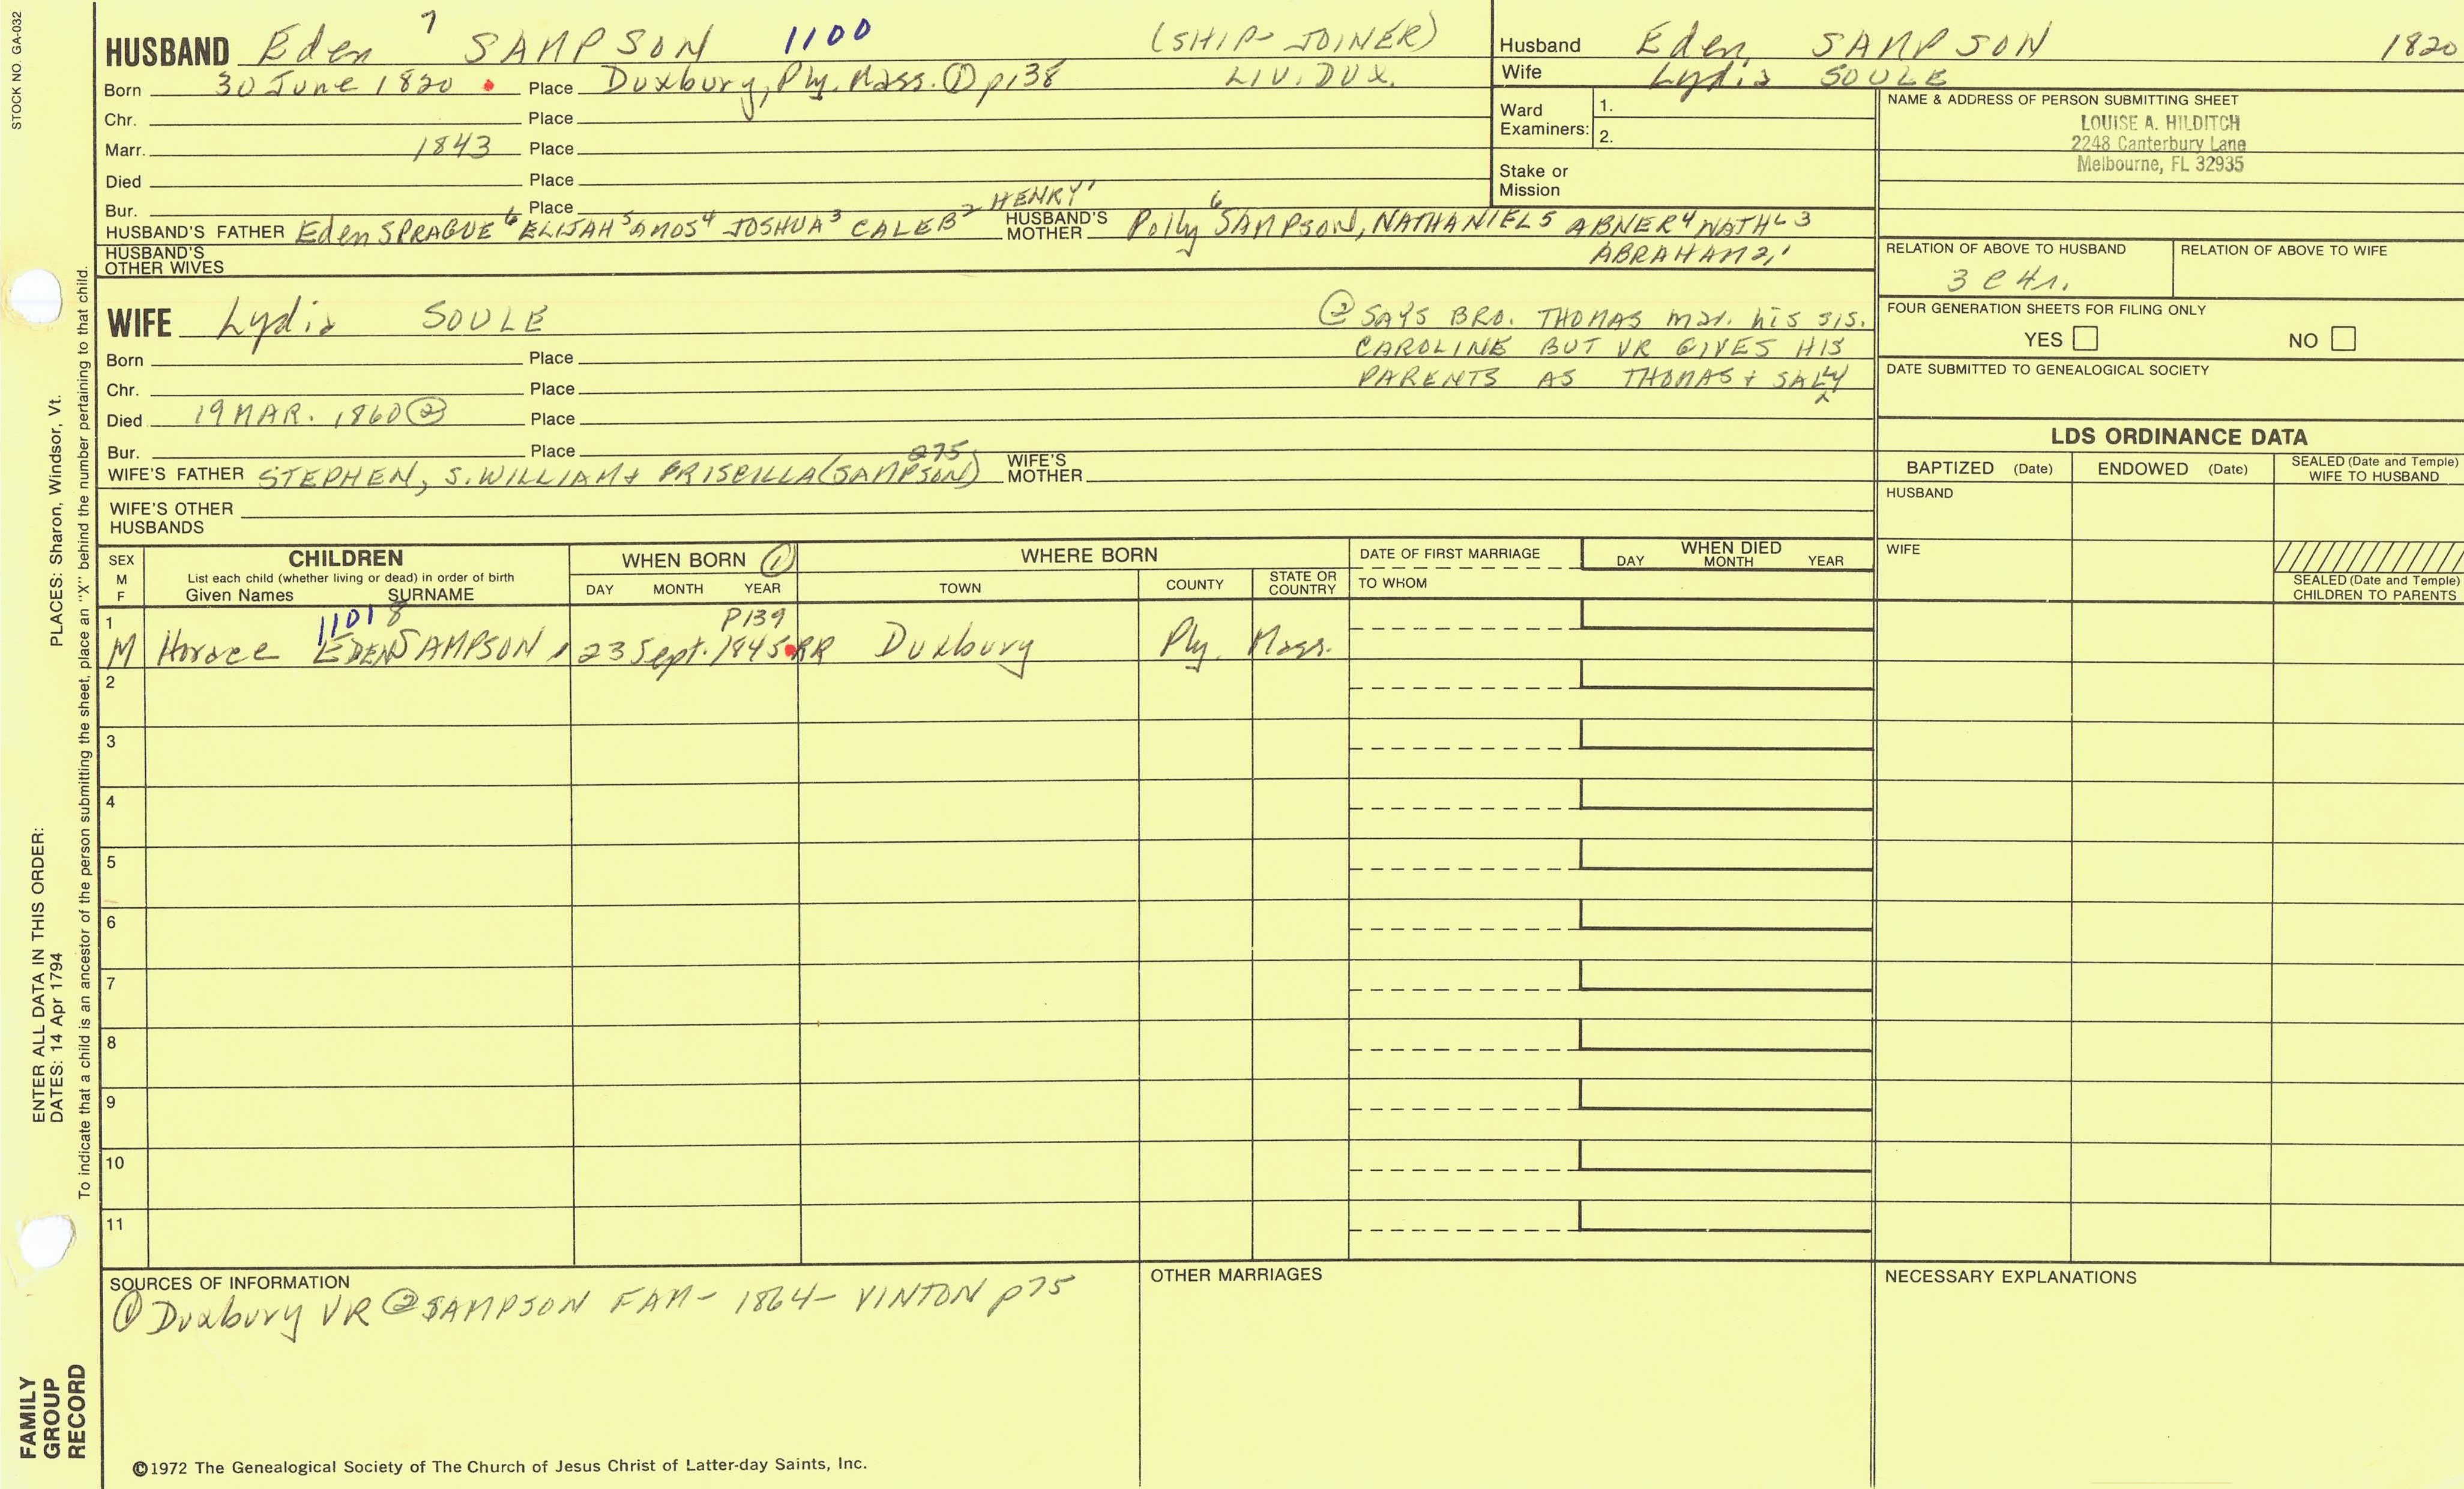 STOCK NO. GA-032
HUSBAND Eden 7 SAMPSON 1100 (SHIP- JOINER)
Born 30 June 1820 Place Duxbury, Ply. Mass. ① p138 LIV. DUX.
Chr. Place
Marr. 1843 Place
Died Place
Bur. Place
HENRY 1
HUSBAND'S FATHER Eden SPRAGUE 6 ELIJAH 5 AMOS 4 JOSHUA 3 CALEB 2 HUSBAND'S MOTHER Polly 6 SAMPSON, NATHANIEL 5 ABNER 4 NATHL 3
ABRAHAM 2, 1
HUSBAND'S OTHER WIVES
Husband Eden SAMPSON 1820
Wife Lydia SOULE
Ward Examiners: 1.
2.
Stake or Mission
NAME & ADDRESS OF PERSON SUBMITTING SHEET
LOUISE A. HILDITCH
2248 Canterbury Lane
Melbourne, FL 32935
RELATION OF ABOVE TO HUSBAND RELATION OF ABOVE TO WIFE
3 C 4r.
FOUR GENERATION SHEETS FOR FILING ONLY
YES NO
DATE SUBMITTED TO GENEALOGICAL SOCIETY
WIFE Lydia SOULE
② SAYS BRO. THOMAS mar. his SIS.
CAROLINE BUT VR GIVES HIS
PARENTS AS THOMAS + SALLY
Born Place
Chr. Place
Died 19 MAR. 1860 ② Place
Bur. Place
275
WIFE'S FATHER STEPHEN, S. WILLIAM + PRISCILLA (SAMPSON) WIFE'S MOTHER
WIFE'S OTHER HUSBANDS
LDS ORDINANCE DATA
BAPTIZED (Date) ENDOWED (Date) SEALED (Date and Temple) WIFE TO HUSBAND
HUSBAND
WIFE
SEALED (Date and Temple) CHILDREN TO PARENTS
SEX M F
CHILDREN
List each child (whether living or dead) in order of birth
Given Names SURNAME
WHEN BORN ①
DAY MONTH YEAR
WHERE BORN
TOWN COUNTY STATE OR COUNTRY
DATE OF FIRST MARRIAGE
TO WHOM
WHEN DIED
DAY MONTH YEAR
1 1101 8 P139
M Horace EDEN SAMPSON 23 Sept. 1845 RR Duxbury Ply. Mass.
2
3
4
5
6
7
8
9
10
11
SOURCES OF INFORMATION
① Duxbury VR ② SAMPSON FAM- 1864- VINTON p75
OTHER MARRIAGES
NECESSARY EXPLANATIONS
©1972 The Genealogical Society of The Church of Jesus Christ of Latter-day Saints, Inc.
ENTER ALL DATA IN THIS ORDER:
DATES: 14 Apr 1794 PLACES: Sharon, Windsor, Vt.
To indicate that a child is an ancestor of the person submitting the sheet, place an "X" behind the number pertaining to that child.
FAMILY
GROUP
RECORD